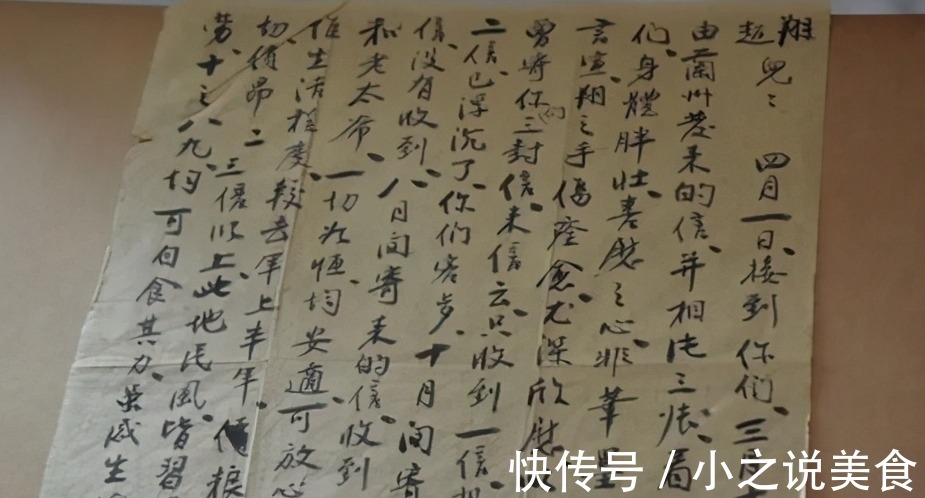 翔
兒：四月一日接到你们三月
由蘭州發来的信并相片三张看
们身體胖壮喜慰之心非筆墨
言宣翔之手傷痊愈尤深欣慰
曾将你们三封信来信云只收到一信
二信已浮沉了你们客岁十月间寄
信没有收到八月间寄来的信收到
和老太爷一切如恒均安適可放心
惟生活程度較去年上半年價粮
切價昂二三倍以上此地民風皆習
劳十之八九均可自食其力荣感生
快传号/小之说美食